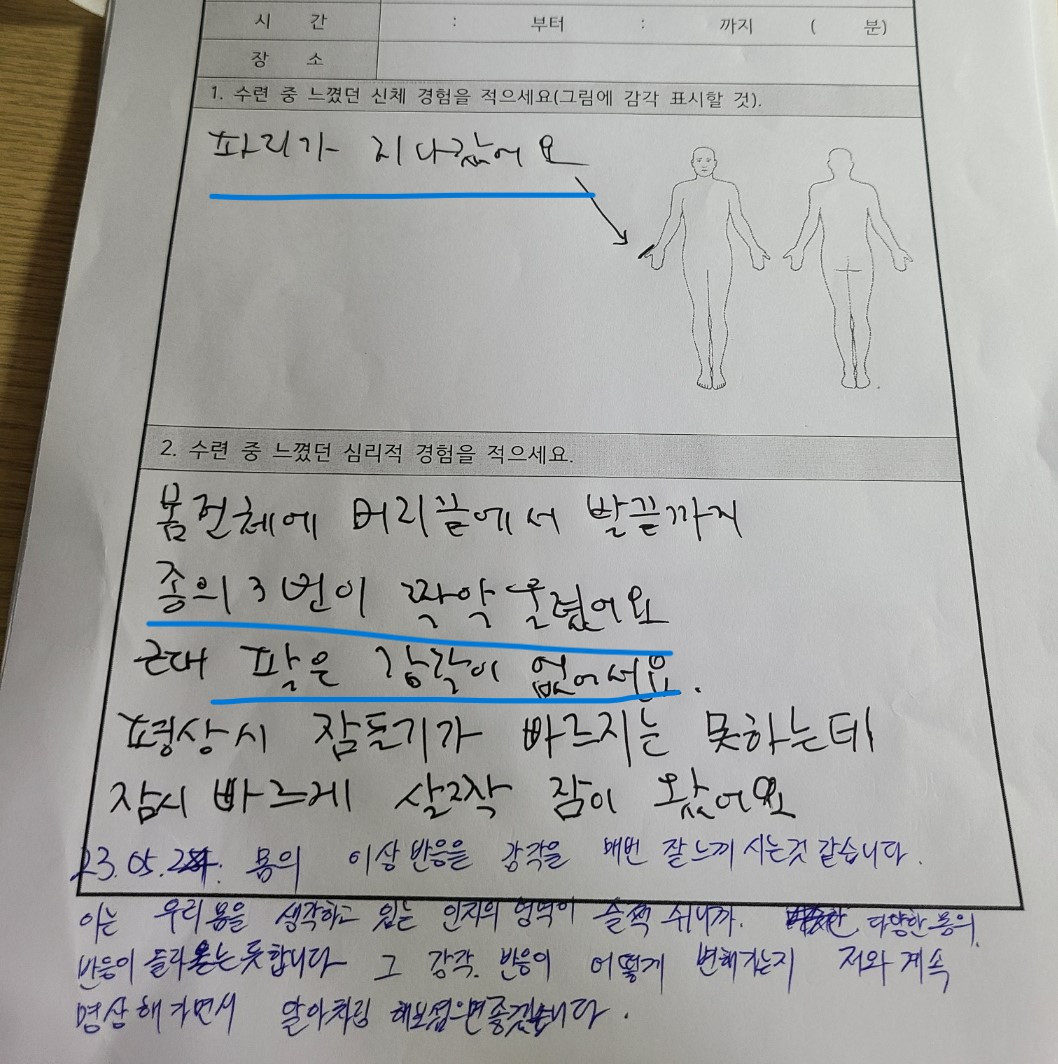 시 간 : 부터 : 까지 ( 분)
장 소
1. 수련 중 느꼈던 신체 경험을 적으세요(그림에 감각 표시할 것).
파리가 지나갔어요
2. 수련 중 느꼈던 심리적 경험을 적으세요.
몸전체에 머리끝에서 발끝까지
종의 3번이 쫙악 울렸어요
근데 팔은 감각이 없어서요.
평상시 잠들기가 빠르지는 못하는데
잠시 빠르게 살짝 잠이 왔어요
23.05. 몸의 이상 반응을 감각을 매번 잘 느끼시는것 같습니다.
이는 우리 몸을 생각하고 있는 인지의 영역이 슬쩍 쉬니까. 다양한 몸의
반응이 올라 못합니다 그 감각. 반응이 어떻게 변해가는지 저와 계속
명상해가면서 알아차림 해보셨으면 좋겠습니다.